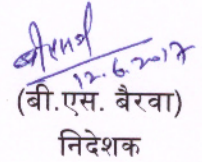 12.6.2017
(बी.एस. बैरवा)
निदेशक